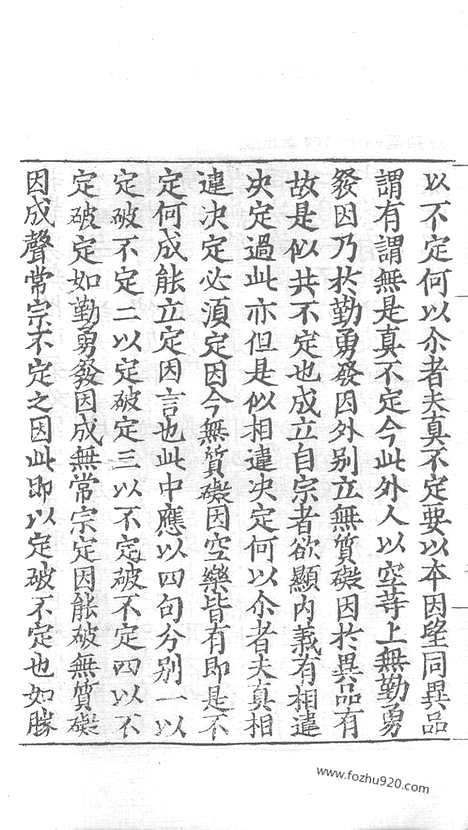 以不定何以尒者夫真不定要以本因望同異品
謂有謂無是真不定今此外人以空等上無勤勇
發因乃扵勤勇發因外别立無質礙因扵異品有
故是似共不定也成立自宗者欲顯内義有相違
决定過此亦但是似相違决定何以尒者夫真相
違决定必須定因今無質礙因空樂皆有即是不
定何成能立定因言也此中應以四句分别一以
定破不定二以定破定三以不定破不定四以不
定破定如勤勇發因成無常宗定因能破無質礙
因成聲常宗不定之因此即以定破不定也如勝
www.fozhu920.com